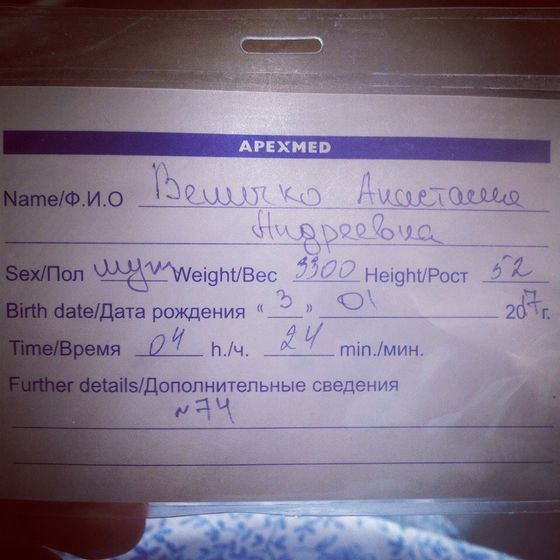 APEXMED
Name/Ф.И.О Величко Анастасия
Андреевна
Sex/Пол муж Weight/Вес 3300 Height/Рост 52
Birth date/Дата рождения « 3 » 01 2017г.
Time/Время 04 h./ч. 24 min./мин.
Further details/Дополнительные сведения
№74